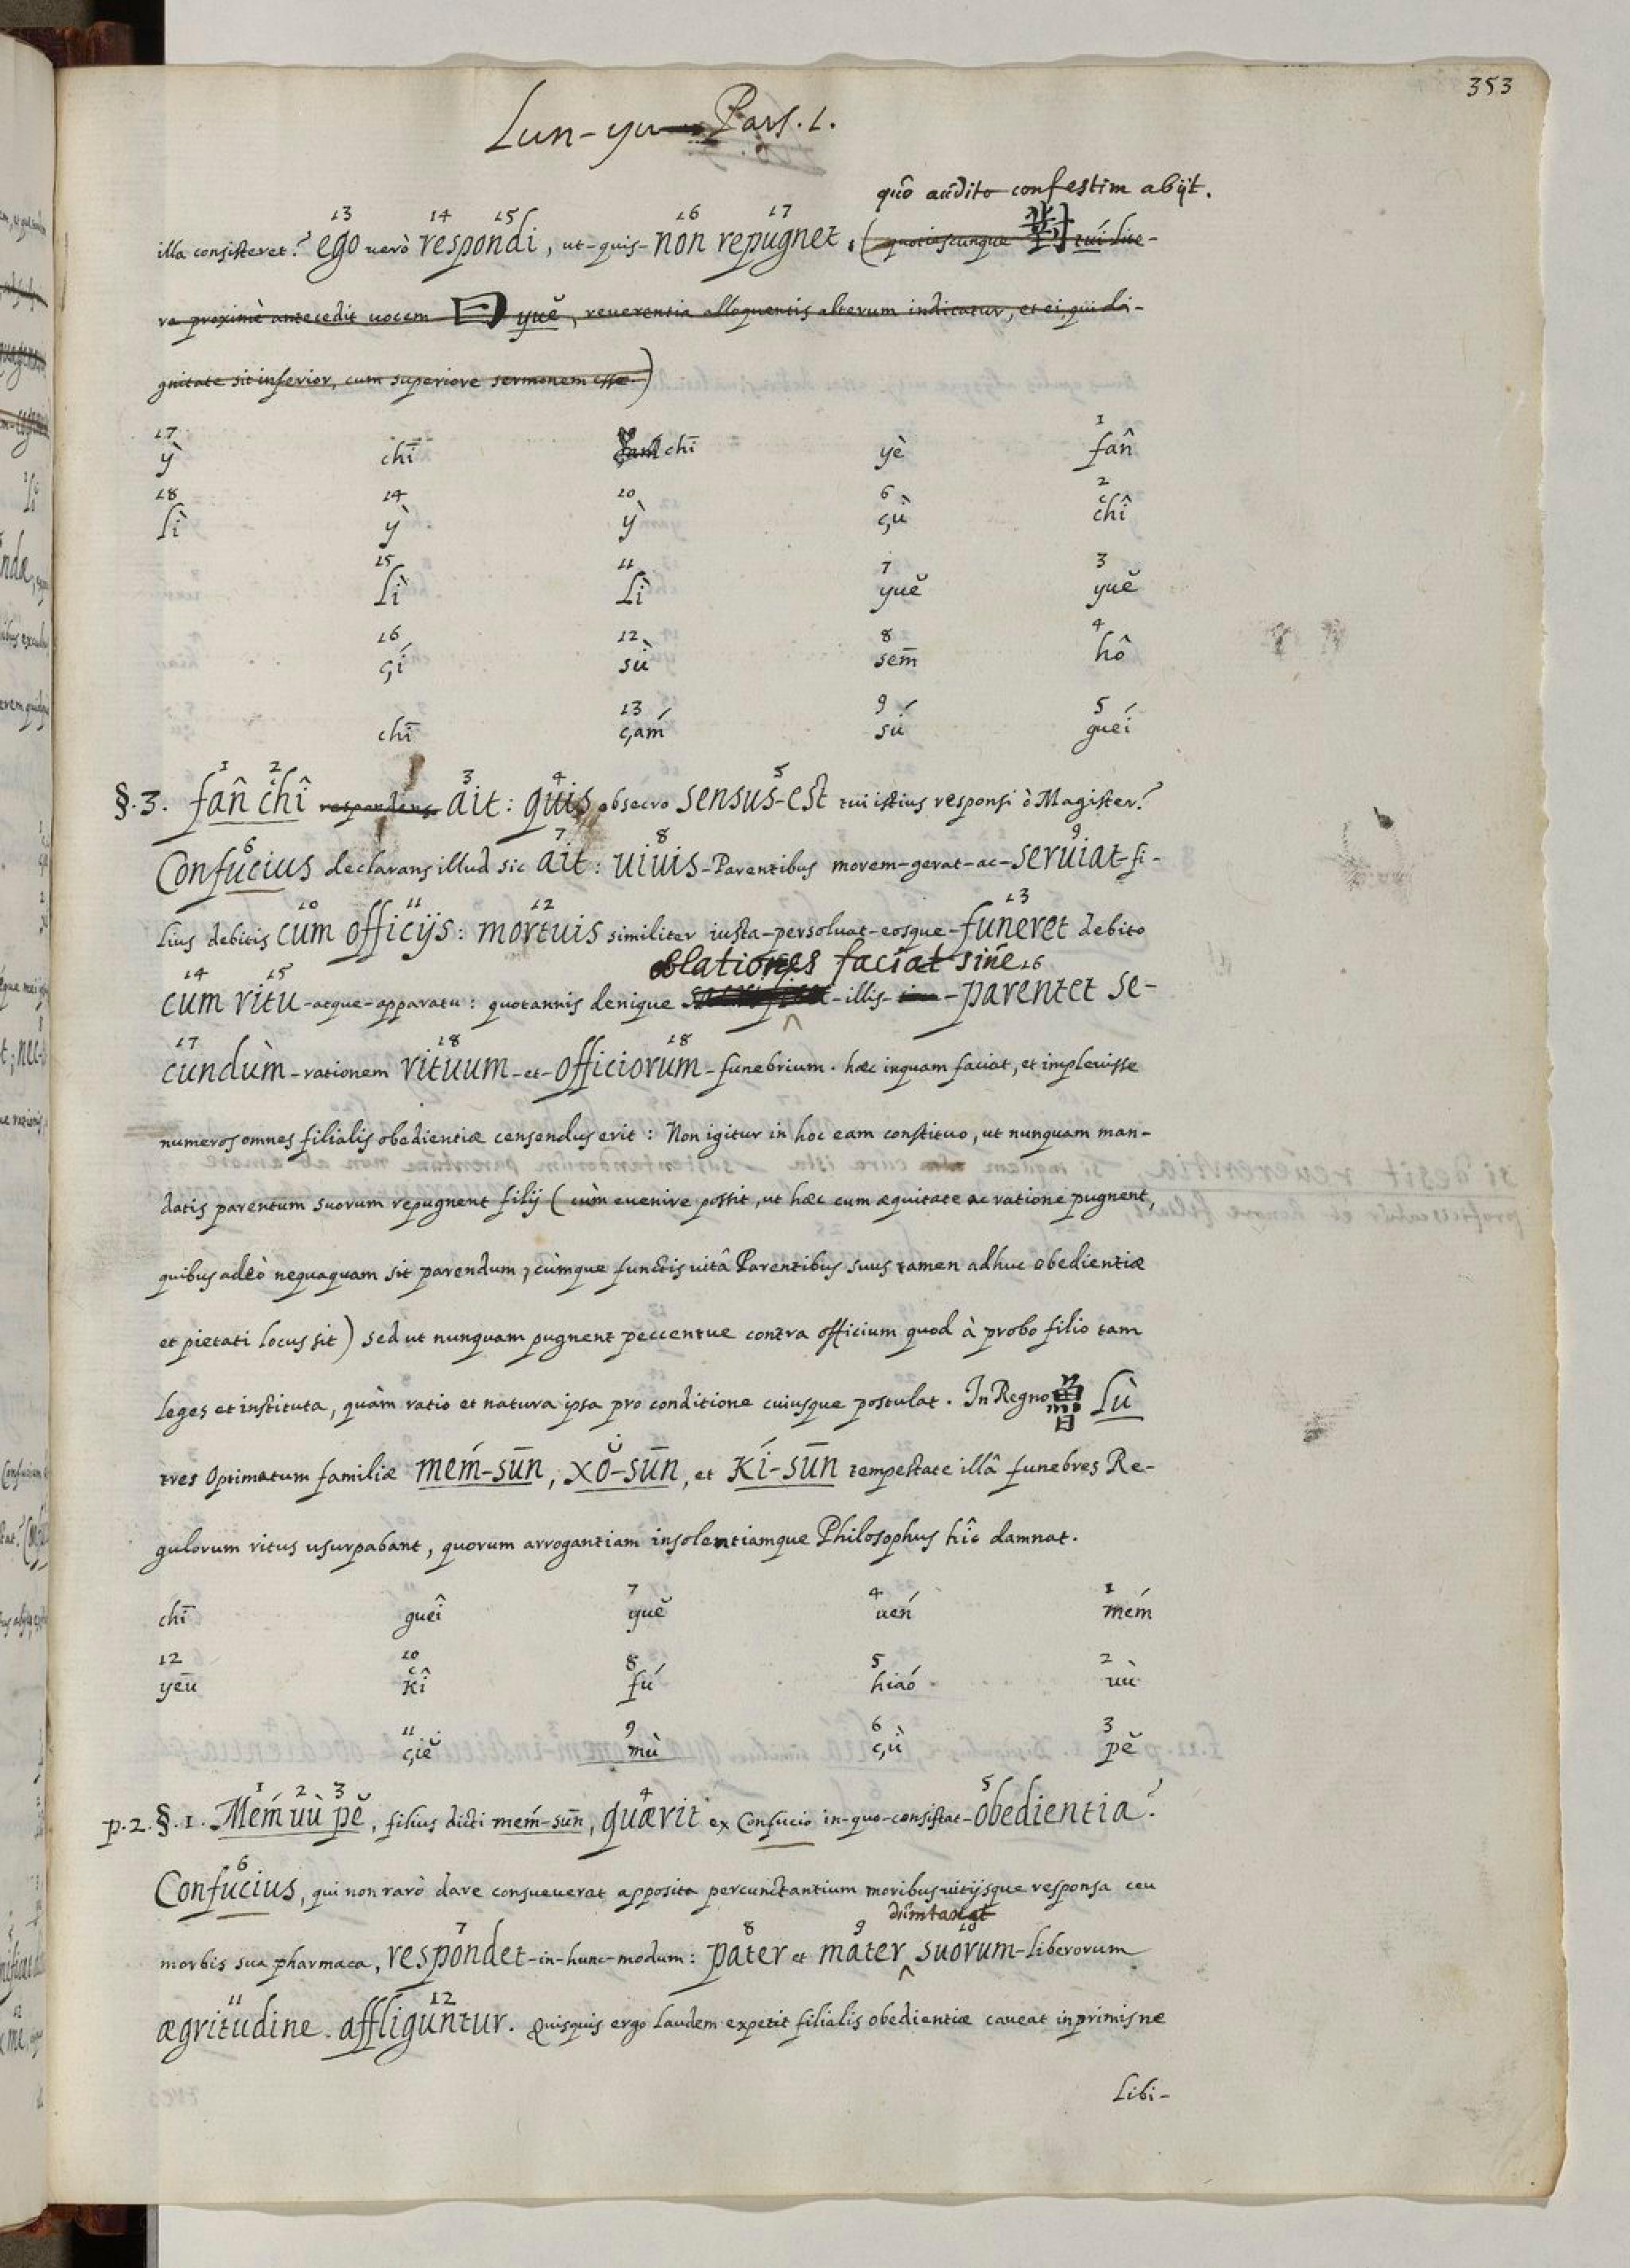 353
Lun-yu Pars. 1.
quô aûdito confestim abijt.
13 14 15 16 17
illa consisteret? ego verò respondi, ut-quis-non repugnet. (quotiescunque 對 tuí lite-
ra proximè antecedit vocem 曰 yuĕ, reverentia alloquentis alterum indicatur, et ei, qui di-
gnitate sit inferior, cum superiore sermonem esse.)
17 1
ỳ chī chī yè fan̂
18 14 10 6 2
lì ỳ ỳ çù chî
15 11 7 3
lì lì yuĕ yuĕ
16 12 8 4
çí sù sem̄ hô
13 9 5
chī çám sú gueí
1 2 3 4 5
§.3. fan̂ chî respondens ait: quis obsecro sensus-est tui istius responsi ò Magister?
6 7 8 9
Confucius declarans illud sic ait: vivis-Parentibus morem-gerat-ac-serviat-fi-
10 11 12 13
lius debitis cum officijs: mortuis similiter iusta-persolvat-eosque-funeret debito
oblationes faciat sine
14 15 16
cum ritu-atque-apparatu: quotannis denique -illis- -parentet se-
17 18 18
cundùm-rationem rituum-et-officiorum-funebrium. hæc inquam faciat, et implevisse
numeros omnes filialis obedientiæ censendus erit: Non igitur in hoc eam constituo, ut nunquam man-
datis parentum suorum repugnent filij (cùm evenire possit, ut hæc cum æquitate ac ratione pugnent,
quibus adeò nequaquam sit parendum, cùmque functis vitâ Parentibus suus tamen adhuc obedientiæ
et pietati locus sit) sed ut nunquam pugnent peccentve contra officium quod à probo filio tam
leges et instituta, quàm ratio et natura ipsa pro conditione cuiusque postulat. In Regno 魯 Lù
tres Optimatum familiæ mem̂-sūn, xŏ-sūn, et Kí-sūn tempestate illâ funebres Re-
gulorum ritus usurpabant, quorum arrogantiam insolentiamque Philosophus hîc damnat.
7 4 1
chī gueî yuĕ vén mém
12 10 8 5 2
yēu kî fú hiáo vù
11 9 6 3
çiĕ mù çù pĕ
1 2 3 4 5
p.2. §.1. Mém vù pĕ, filius dicti mém-sūn, quærit ex Confucio in-quo-consistat-obedientia?
6
Confucius, qui non rarò dare consueverat apposita percunctantium moribus vitijsque responsa ceu
dumtaxat
7 8 9 10
morbis sua pharmaca, respondet-in-hunc-modum: pater et mater suorum-liberorum
11 12
ægritudine affliguntur. Quisquis ergo laudem expetit filialis obedientiæ caveat inprimis ne
libi-